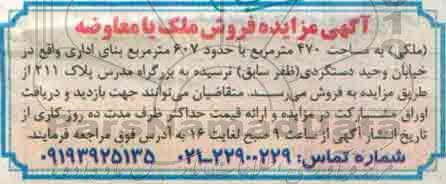 آگهی مزایده فروش ملک یا معاوضه
(ملکی) به مساحت ۴۷۰ مترمربع با حدود ۶۰۷ مترمربع بنای اداری واقع در
خیابان وحید دستگردی(ظفر سابق) نرسیده به بزرگراه مدرس پلاک ۲۱۱ از
طریق مزایده به فروش می‌رسد. متقاضیان می‌توانند جهت بازدید و دریافت
اوراق مشارکت در مزایده و ارائه قیمت حداکثر ظرف مدت ده روز کاری از
تاریخ انتشار آگهی از ساعت ۹ صبح لغایت ۱۶ به آدرس فوق مراجعه فرمایند.
شماره تماس: ۲۲۹۰۰۲۲۹-۰۲۱ ۰۹۱۹۳۹۲۵۱۳۵